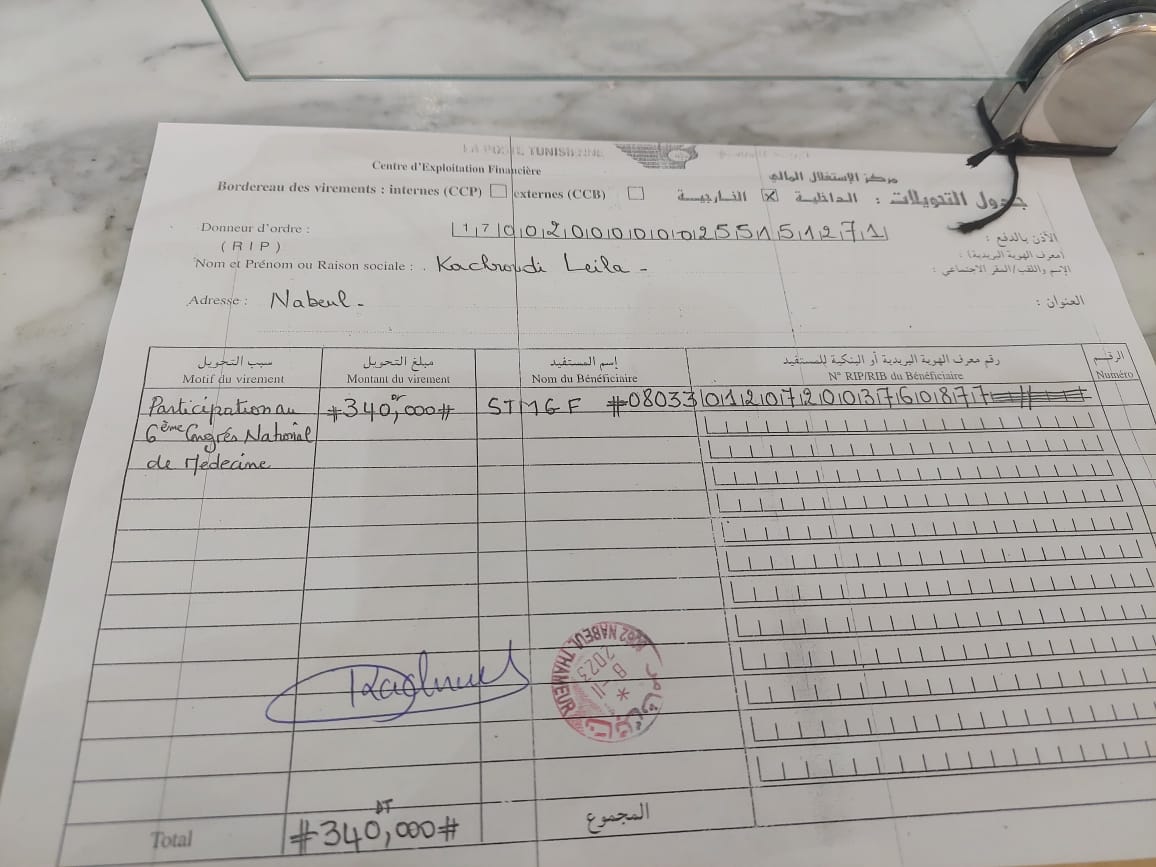 LA POSTE TUNISIENNE
Centre d'Exploitation Financière
مركز الإستغلال المالي
Bordereau des virements : internes (CCP) externes (CCB)
جدول التحويلات : الداخلية الخارجية
Donneur d'ordre :
(RIP)
17002000000255151271
الآذن بالدفع :
(معرف الهوية البريدية) :
Nom et Prénom ou Raison sociale : Kachroudi Leila -
الإسم واللقب/المقر الإجتماعي :
Adresse : Nabeul -
العنوان :
سبب التحويل مبلغ التحويل إسم المستفيد رقم معرف الهوية البريدية أو البنكية للمستفيد الرقم
Motif du virement Montant du virement Nom du Bénéficiaire N° RIP/RIB du Bénéficiaire Numéro
Participation au #340,000# DT STMGF #08033010120720037608 77
6ème Congrés National
de Médecine
NABEUL THAMEUR
2023
Total #340,000# DT المجموع